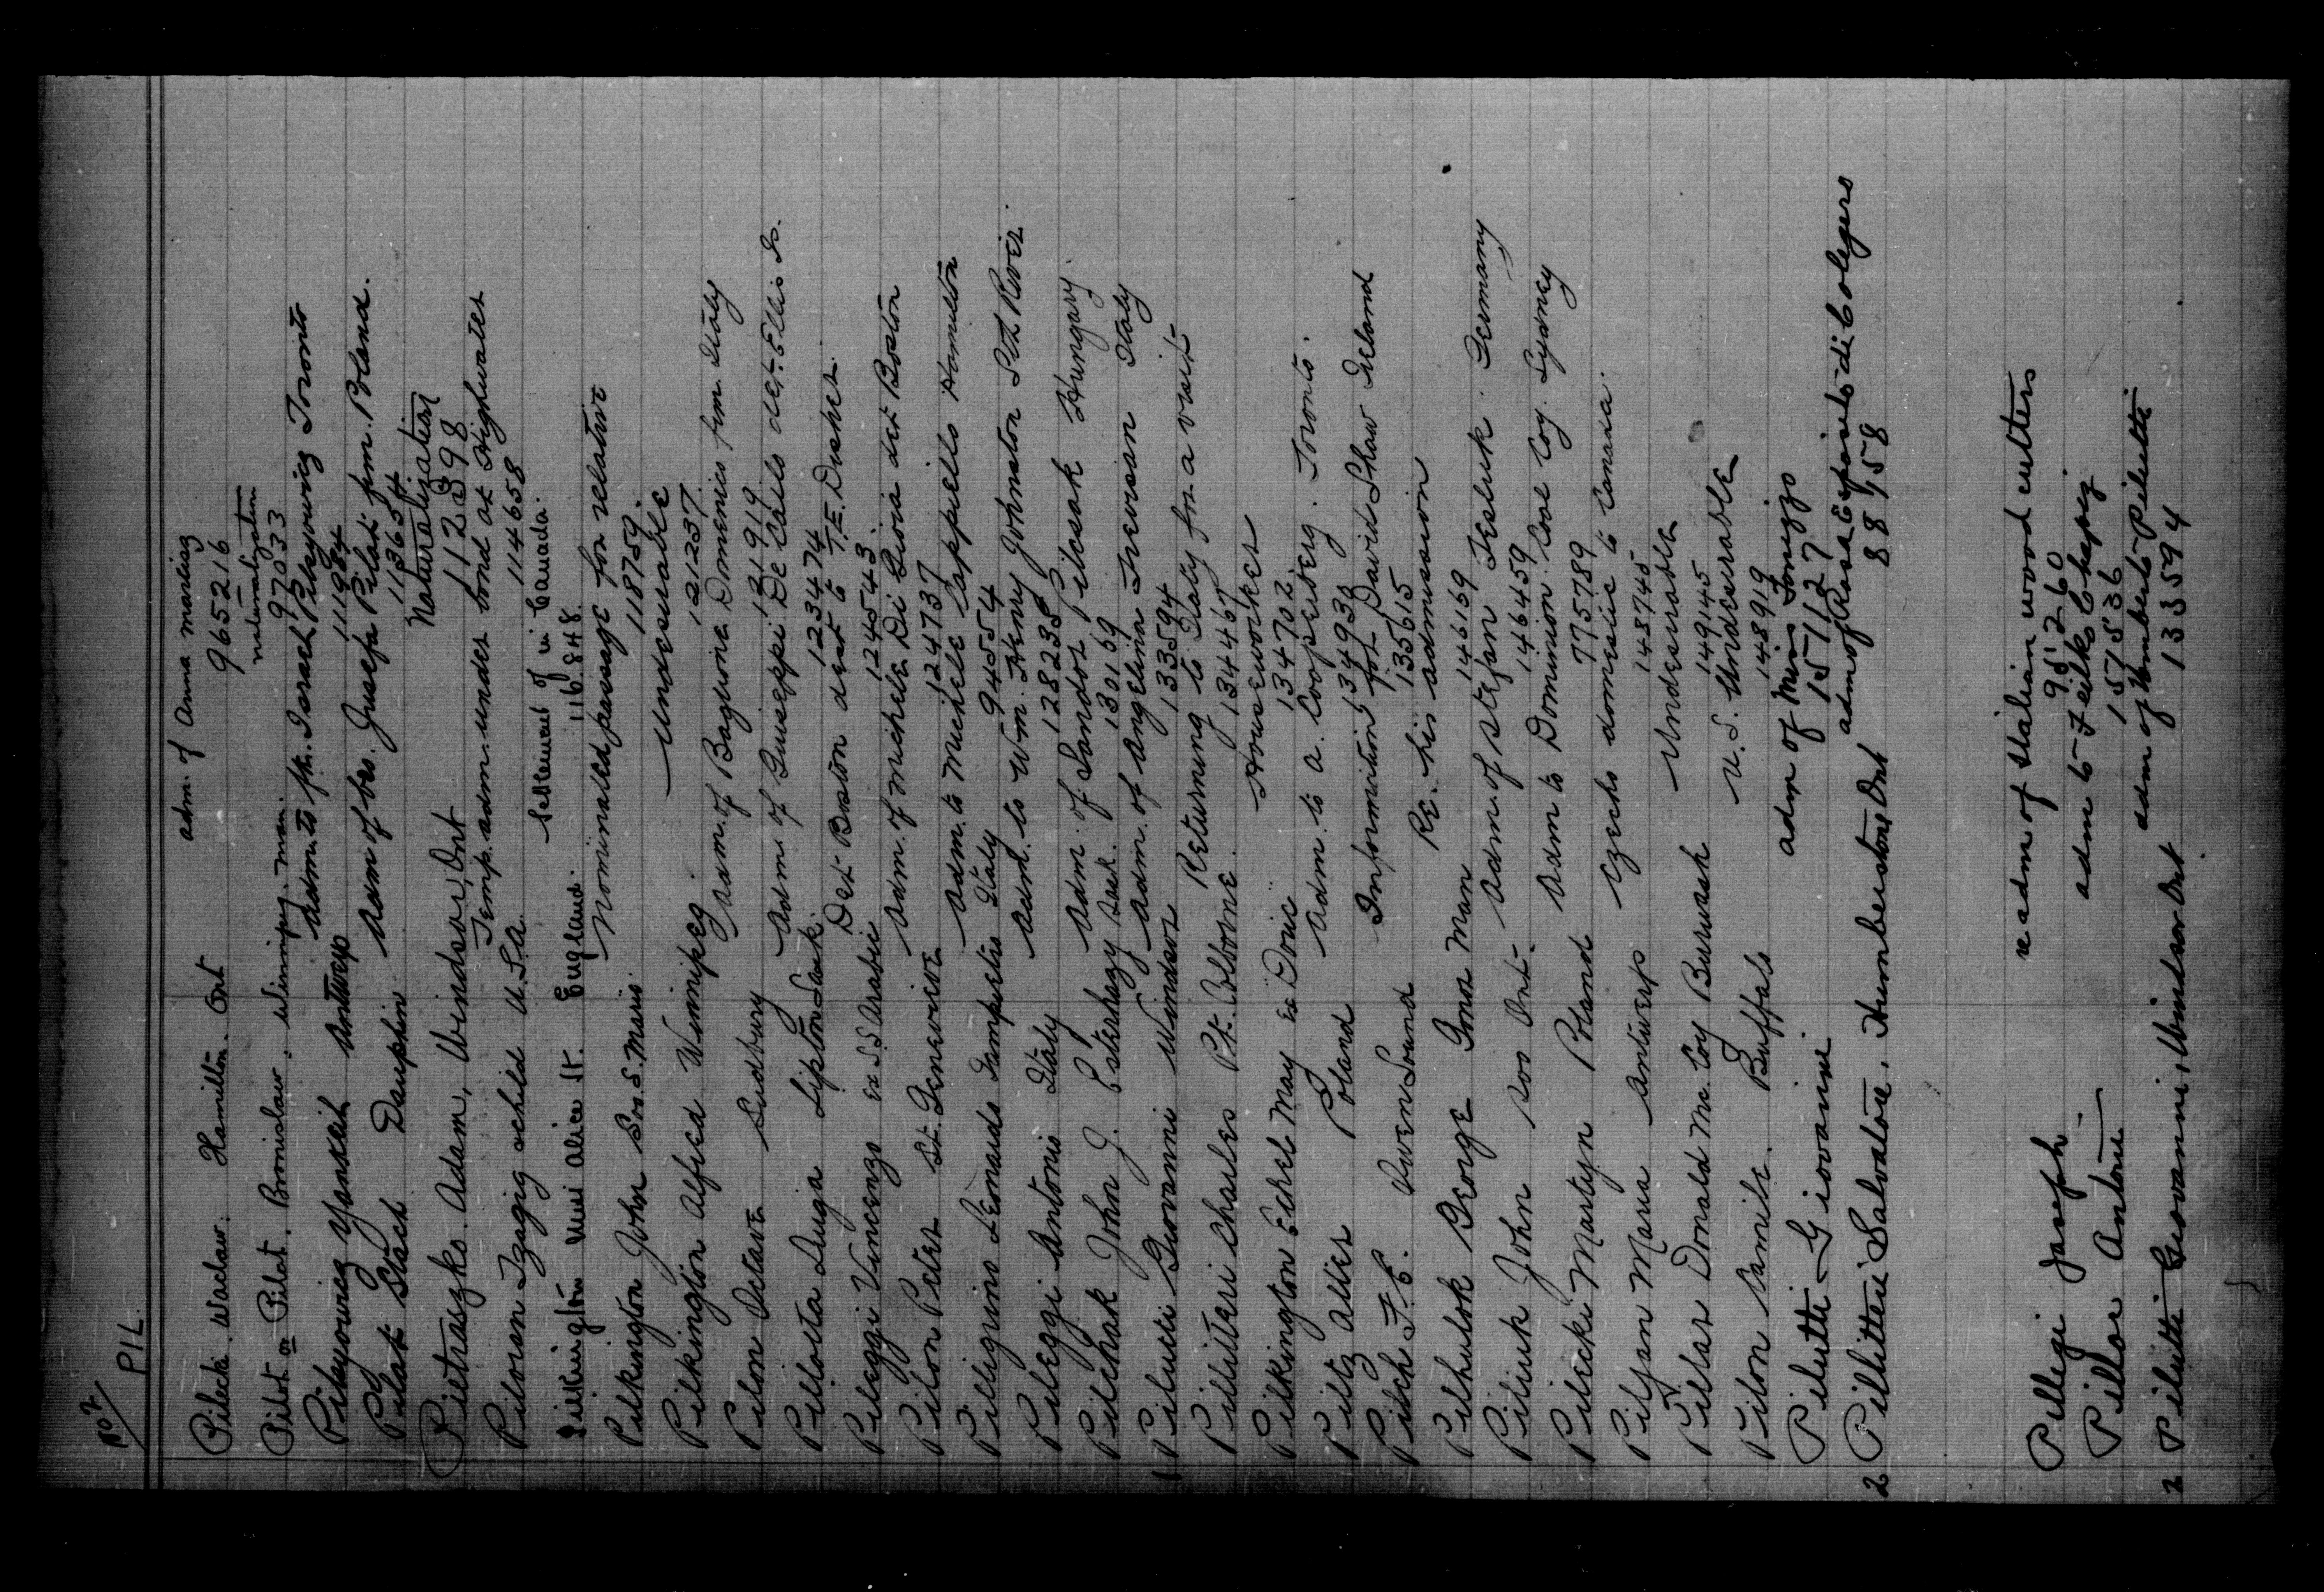 No 2
PIL.
Pilecki. Waclaw. Hamilton. Ont adm. of Anna marling
965216
Pilot or Pilat. Bronislaw. Winnipeg. man. naturalization
97033
Pilzyowicz Yankleib Antwerp Adm. to fth. Israel Pilzyowicz Toronto
111984
Pilat Stach Dauphin Adm of bro. Jusefa Pilat frm. Poland.
113654
Pietraszko. Adam, Windsor, Ont Naturalization
112898
Pilosian Tzagig &child U.S.A. Temp. adm. under bond at Highwater
114658
Pilkington Miss Alice St. England. Settlement of in Canada.
116.848
Pilkington John Soo S. Marie Nominated passage for relative
118759.
Pilkington Alfred Winnipeg Undesirable
121237.
Pilon Octave Sudbury Adm. of Baglione Domenico frm. Italy
121919
Pillotta Luiga Lipton Sask. Adm. of Guiseppi De Carlo det. Ellis Is.
123474
Pileggi Vincenzo Ex S.S. Arabic Det. Boston dest to T.E. Dusher.
124543.
Pilon Peter St. Genevieve Adm. of Michele Di Gioia det Boston
124737
Pilligrino Leonardo Dampietro Italy Adm. to Michele Cappello Hamilton
944554
Pileggi Antonio Italy Adm. to Wm. Henry Johnston Std River.
128235
Pilchak John J. Esterhazy Sask. Adm. of Sandor Pilcsak Hungary.
130169
1 Pilutti Giovanni Windsor Adm. of Angelina Trevisan Italy
133594
Pillitteri Charles Pt. Colborne. Returning to Italy for a visit
134467
Pilkington Ethel May Ex Doric Houseworker
134702.
Piltz Alter Poland Adm. to A. Coopersberg. Toronto.
134938
Pilch F.C. Owen Sound Information for David Shaw Ireland
135615
Pilhulok George Gona Man Re. his admission
146169
Piliuk John Soo Ont. Adm. of Stefan Tesluk. Germany
146459
Pilecki Martyn Poland Adm to Dominion Coal Coy. Sydney
775789
Pilzan Maria Antwerp Czecho domestic to Canada.
148745
Pillar Donald Mc. Coy Burwash Undesirable
149145
Pilon Camile. Buffalo U.S. Undesirable
148919
Pilutti Giovanni adm of Miss Tonizzo
157127
2 Pillitteri Salvatore, Humberstone, Ont adm of Rosa Esposito di Cologero
88758
Pillegi Joseph. re adm of Italian wood cutters
95260
Pillor Antoni adm to Feliks Chapiz
157536
2 Pilutti Giovanni, Windsor Ont adm of Umberto Pilutti
133594